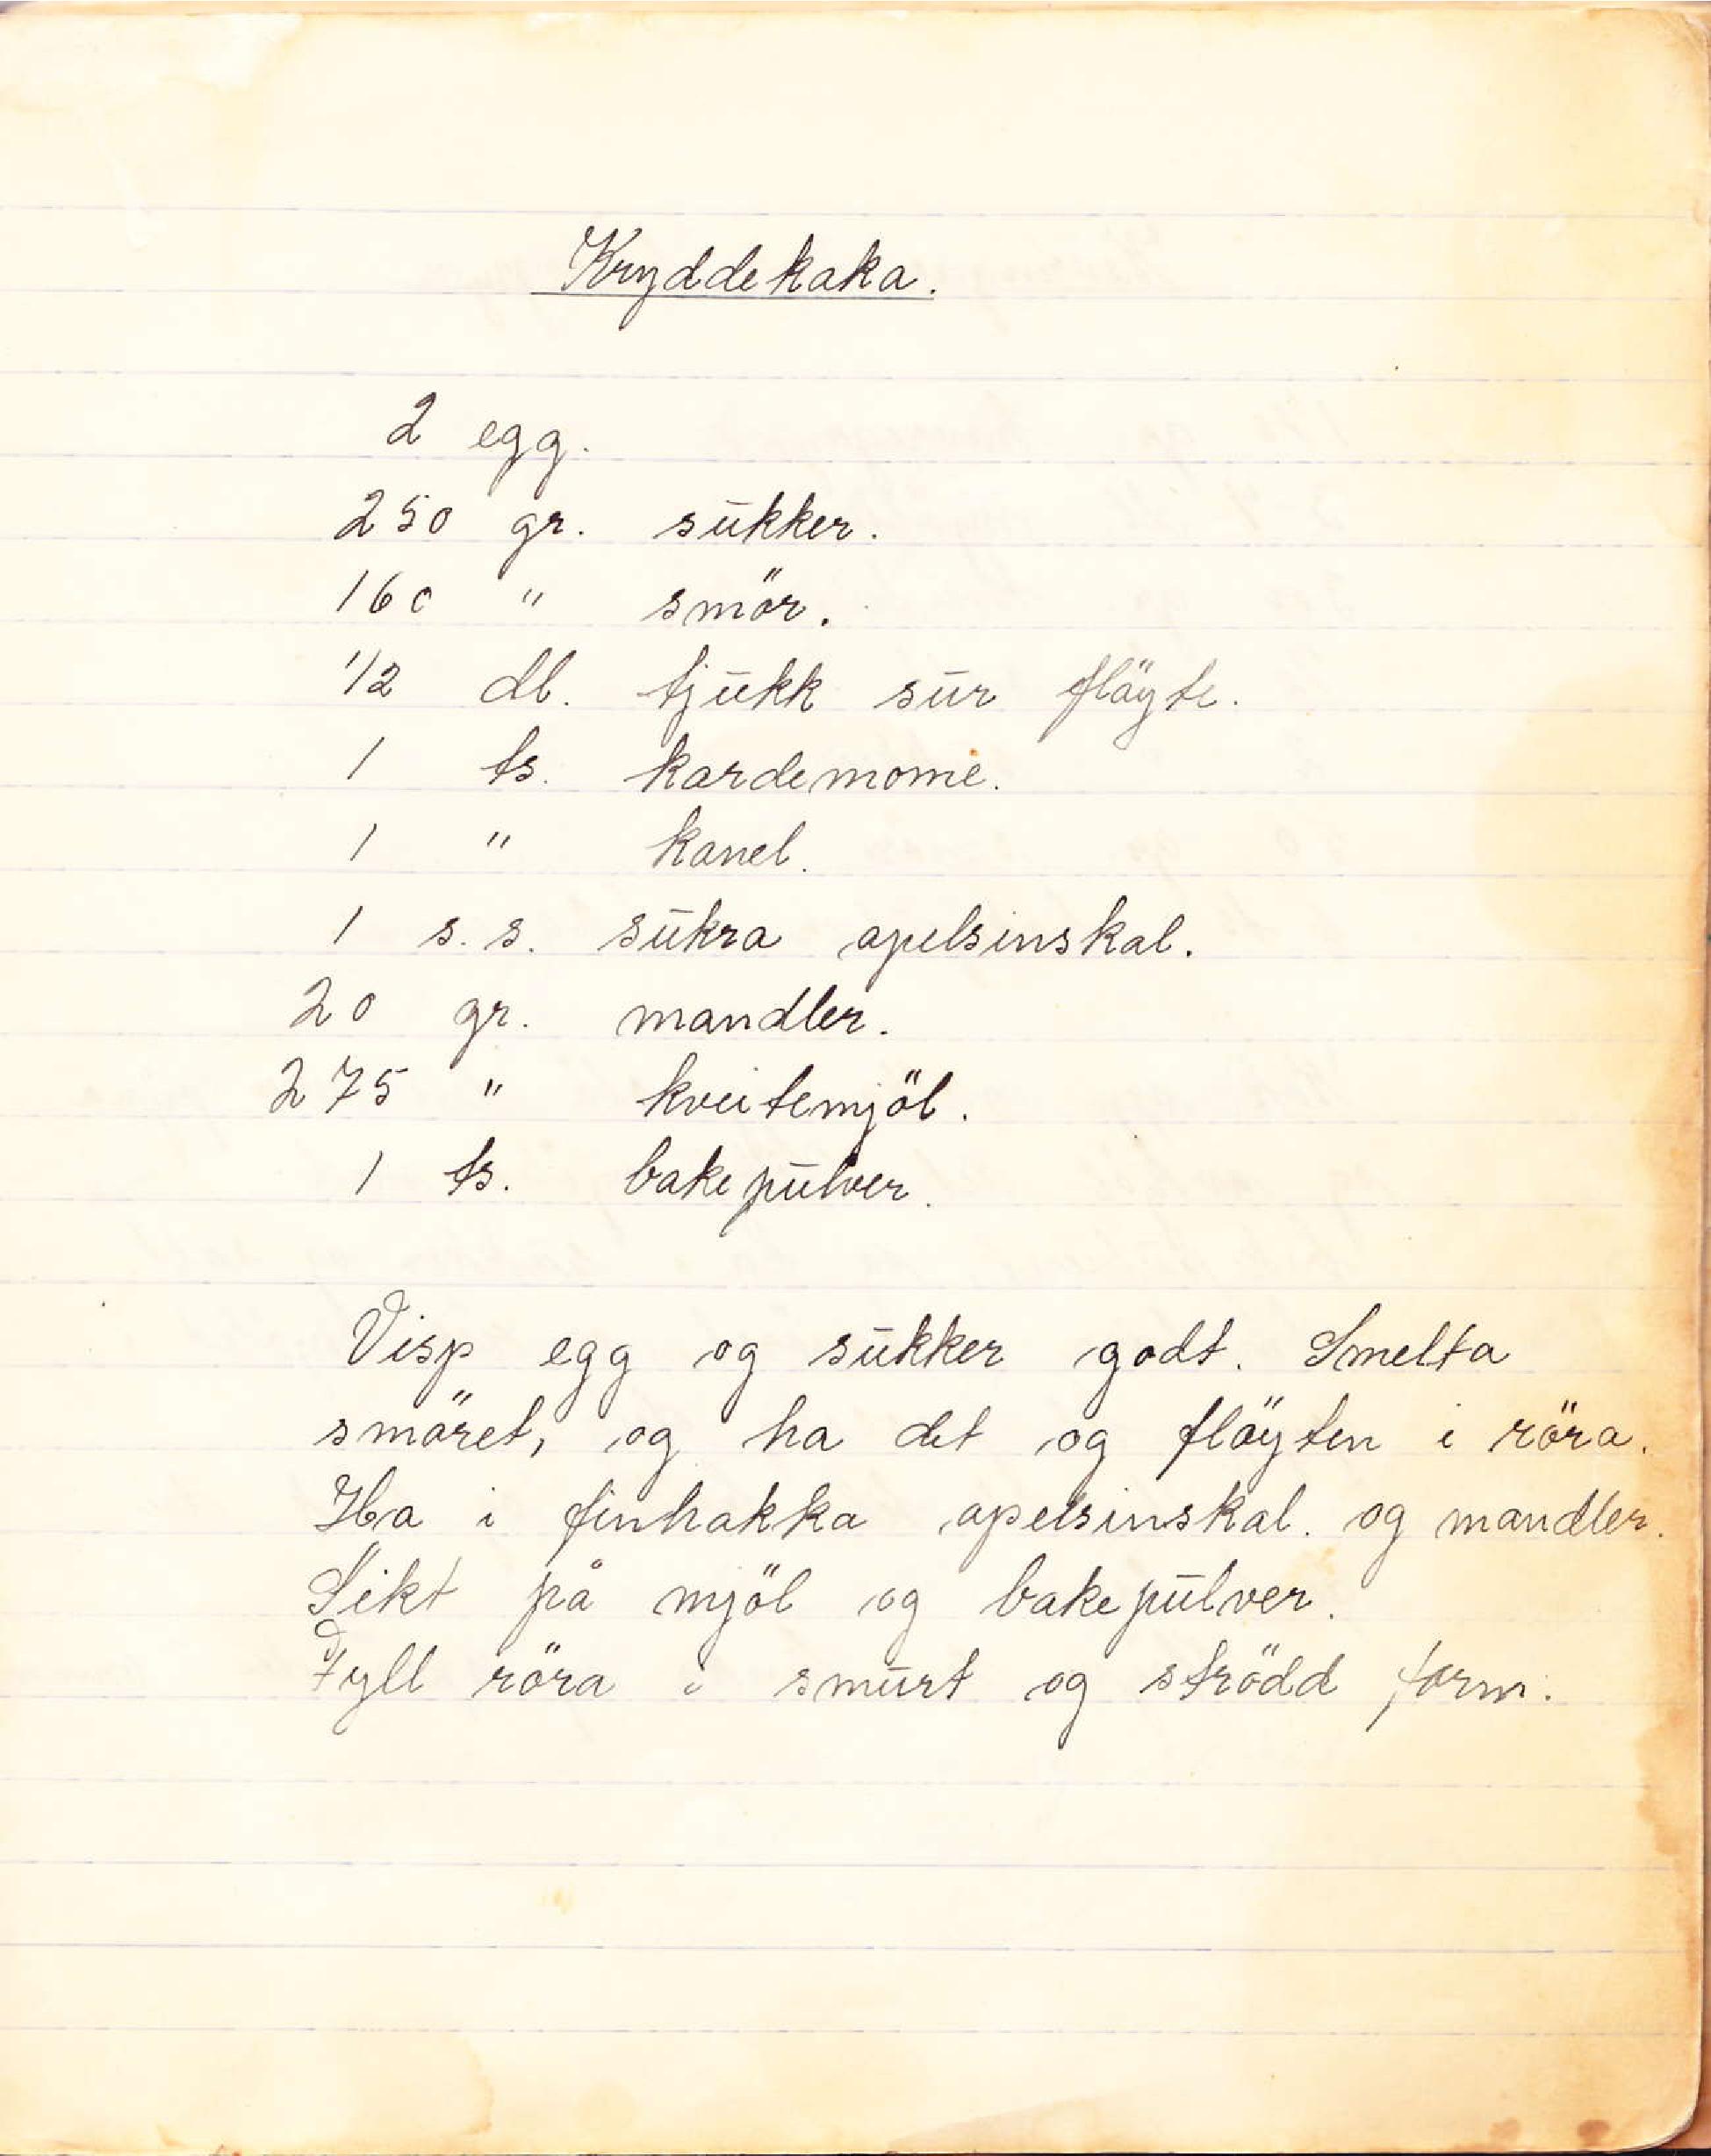 Kryddekaka.
2 egg.
250 gr. sūkker.
160 " smör.
1/2 dl. tjūkk sūr flöyte.
1 ts. kardemome.
1 " kanel.
1 s.s. sūkra apelsinskal.
20 gr. mandler.
275 " kveitemjöl.
1 ts. bakepūlver.
Visp egg og sūkker godt. Smelta
smöret, og ha det og flöyten i röra.
Ha i finhakka apelsinskal. og mandler.
Sikt på mjöl og bakepūlver.
Fyll röra i smūrt og strödd form.